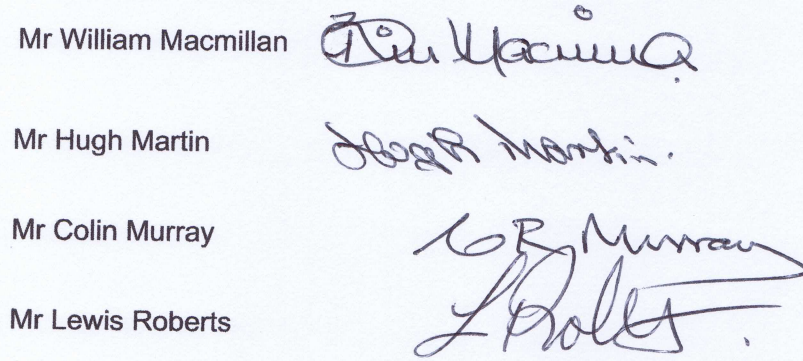 Mr William Macmillan
Mr Hugh Martin Hugh Martin.
Mr Colin Murray C R Murray
Mr Lewis Roberts L Roberts